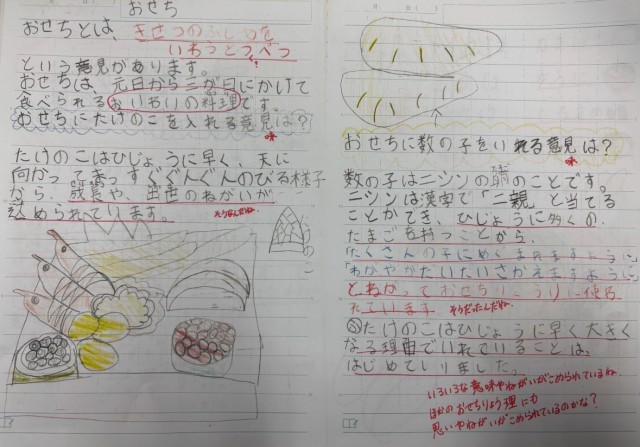 おせち
おせちとは、きせつのふしめを
いわうとくべつ
という意見があります。
味
おせちは、元日から三が日にかけて
食べられるおいわいの料理です。
おせちにたけのこを入れる意見は?
味
たけのこはひじょうに早く、天に
向かってまっすぐぐんぐんのびる様子
から、成長や、出世のねがいが
込められてります。
そうなんだね。
たけのこ
おせちに数の子をいれる意見は?
味
数の子はニシンの卵のことです。
ニシンは漢字で「二親」と当てる
ことができ、ひじょうに多くの
たまごを持つことから、
「たくさんの子にめぐまれますように」
「わがやがだいだいさかえますように」
とねがっておせちりょうりに使われ
ています。そうだったんだね。
たけのこはひじょうに早く大きく
なる理由でいれていることは、
はじめてしりました。
いろいろな意味やねがいがこめられているね。
ほかのおせちりょう理にも
思いやねがいがこめられているのかな?